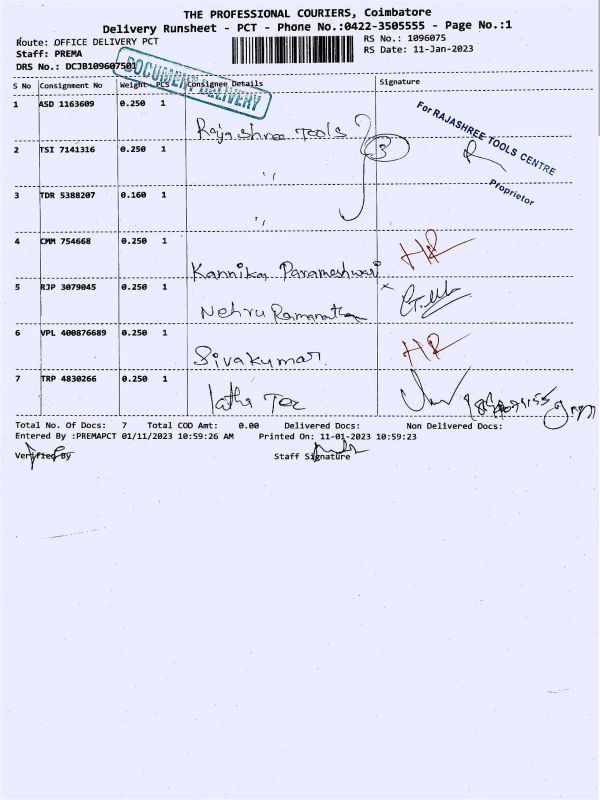 THE PROFESSIONAL COURIERS, Coimbatore
Delivery Runsheet - PCT - Phone No.:0422-3505555 - Page No.:1
Route: OFFICE DELIVERY PCT
RS No.: 1096075
Staff: PREMA
RS Date: 11-Jan-2023
DRS No.: DCJB109607501
DOCUMENT DELIVERY
S No Consignment No Weight PCS Consignee Details Signature
1 ASD 1163609 0.250 1 Rajashree Tools
For RAJASHREE TOOLS CENTRE
Proprietor
2 TSI 7141316 0.250 1 " 3
3 TDR 5388207 0.160 1 "
4 CMM 754668 0.250 1 Kannika Parameshwari HR
5 RJP 3079045 0.250 1 Nehru Ramanathan
6 VPL 400876689 0.250 1 Sivakumar HR
7 TRP 4830266 0.250 1
Total No. Of Docs: 7 Total COD Amt: 0.00 Delivered Docs: Non Delivered Docs:
Entered By :PREMAPCT 01/11/2023 10:59:26 AM Printed On: 11-01-2023 10:59:23
Verified By Staff Signature